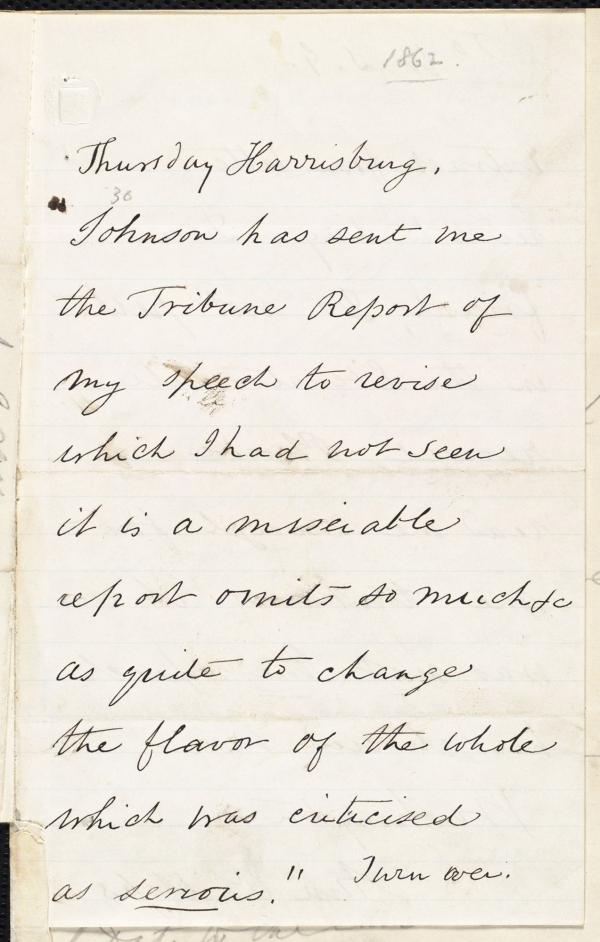 1862.
Thursday Harrisburg.
30
Johnson has sent me
the Tribune Report of
my speech to revise
which I had not seen
it is a miserable
report omits so much &c
as quite to change
the flavor of the whole
which was criticised
as serious."
Turn over.